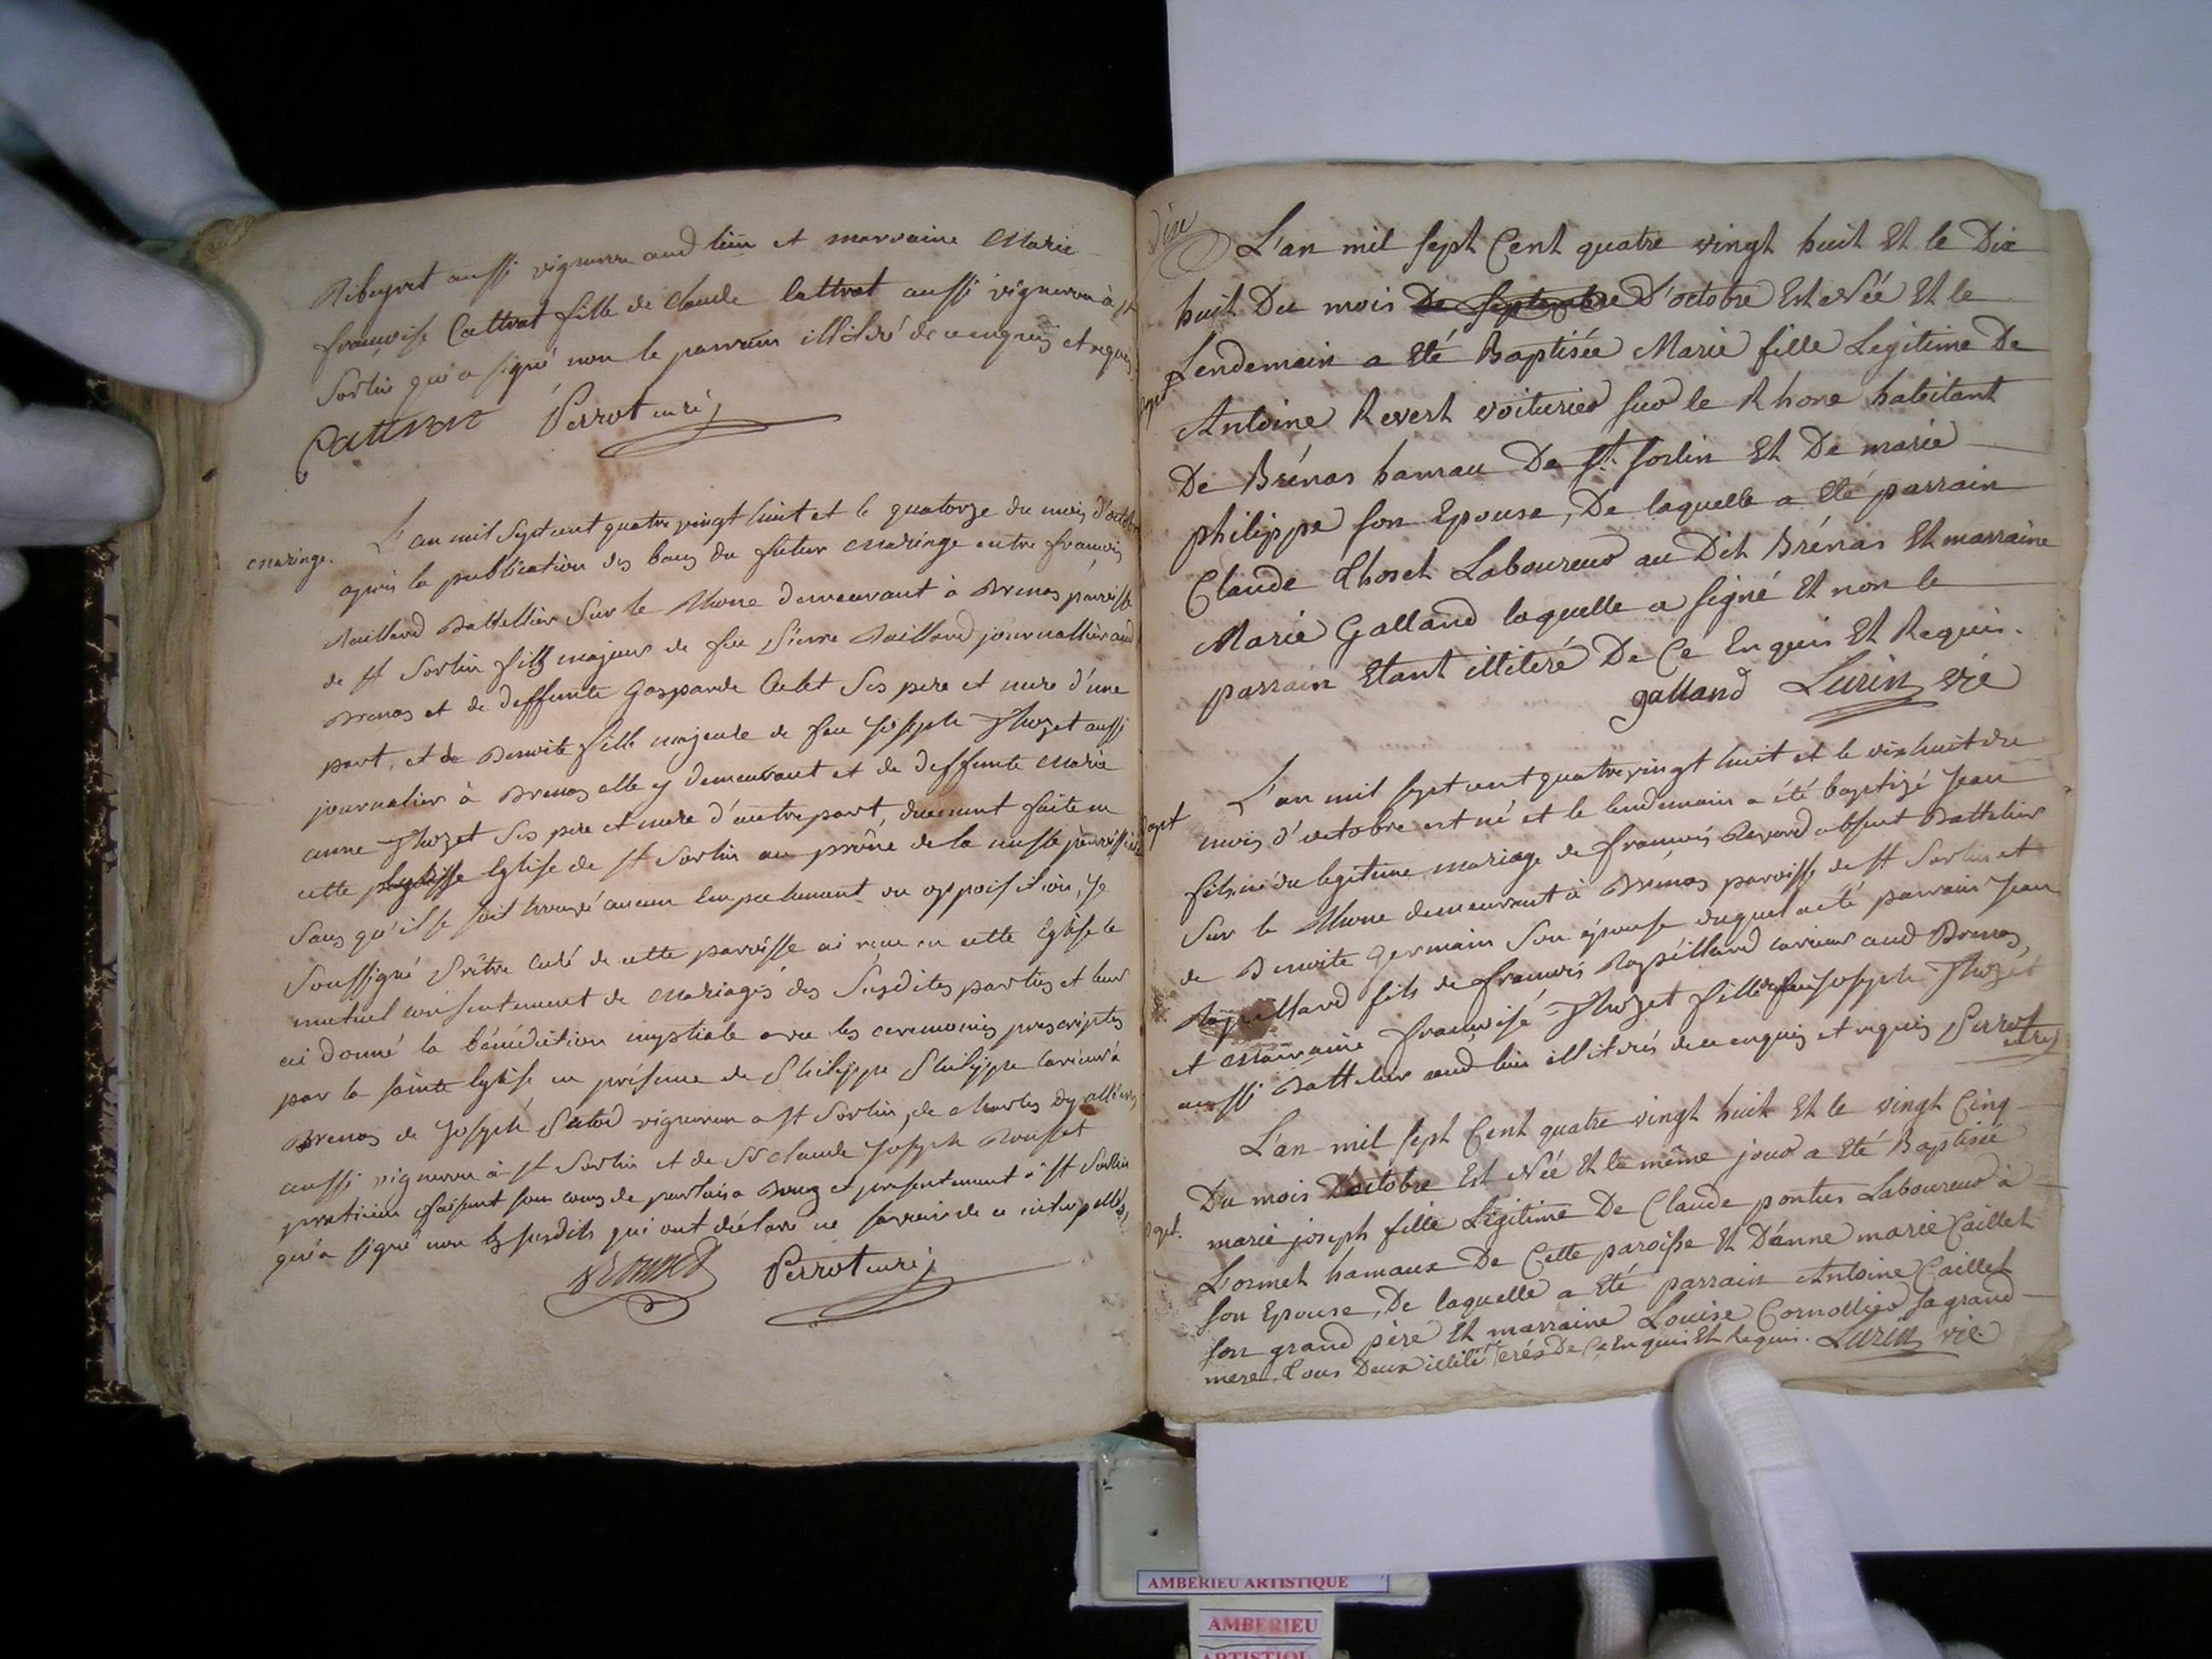 Ribeyret aussi vigneron aud lieu et marraine Marie
françoise Cattrat fille de Claude Cattrat aussi vigneron à St
Sorlin qui a signé non le parrain illitéré de ce enquis et requis
Perrot curé
mariage.
L'an mil sept cent quatre vingt huit et le quatorze du mois d'octobre
après la publication des bans du futur mariage entre françois
Raillard Battellier sur le Rhone demeurant à Brenas paroisse
de St Sorlin fils majeur de feu Pierre Raillard journallier aud
Brenas et de deffunte Gasparde ses pere et mere d'une
part, et de Benoite fille majeure de feu Joseph Thozet aussi
journalier à Brenas elle y demeurant et de deffunte Marie
anne Thozet ses pere et mere d'autre part, duement faite en
cette Eglise de St Sorlin au prône de la messe paroissiale
sans qu'il se soit trouvé aucun empechement ou opposition, Je
soussigné Prêtre Curé de cette paroisse ai reçu en cette Eglise le
mutuel consentement de mariage des susdites parties et leur
ai donné la bénédiction nuptiale avec les ceremonies prescriptes
par la sainte Eglise en présence de Philippe Philippe carrieur à
Brenas de Joseph vigneron a St Sorlin, de Charles
aussi vigneron à St Sorlin et de Sr Claude Joseph Rousset
praticien faisant son cours de pratique a Bourg et presentement à St Sorlin
qui a signé non les susdits qui ont déclaré ne savoir de ce interpellés,
Perrot curé
L'an mil sept Cent quatre vingt huit Et le Dix
huit Du mois De Septembre D'octobre Est Née Et le
Lendemain a Eté Baptisée Marie fille Legitime De
Antoine Revert voiturier sur le Rhone habitant
De Brénas hamau De St. Sorlin Et De marie
philippe son Epouse, De laquelle a Eté parrain
Claude Thoset Laboureur au Dit Brénas Et marraine
Marie Galland laquelle a signé Et non le
parrain Etant illiteré De Ce Enquis Et Requis.
galland Lurin vic
Bapt
L'an mil sept cent quatre vingt huit et le dix huit du
mois d'octobre est né et le lendemain a été baptizé Jean
fils né du legitime mariage de françois Revard absent Battelier
sur le Rhone demeurant à Brenas paroisse de St Sorlin et
de Benoite Germain son épouse duquel a été parrain Jean
Rapillard fils de françois Rapillard carrieur aud Brenas,
et Marraine françoise Thozet fille de feu Joseph Thozet
aussi Battelier aud lieu illitérés de ce enquis et requis Perrot
curé
Bapt.
L'an mil sept Cent quatre vingt huit Et le vingt Cinq
Du mois D'octobre Est Née Et le même jour a Eté Baptisée
marie joseph fille Légitime De Claude pontus Laboureur à
L'ormet hamaux De Cette paroisse Et D'anne marie Caillet
son Epouse, De laquelle a Eté parrain Antoine Caillet
son grand père Et marraine Louise Cornollier sa grand
mere, Tous Deux illitérés De Ce Enquis Et Requis. Lurin vic
AMBERIEU ARTISTIQUE
AMBERIEU
ARTISTIQUE